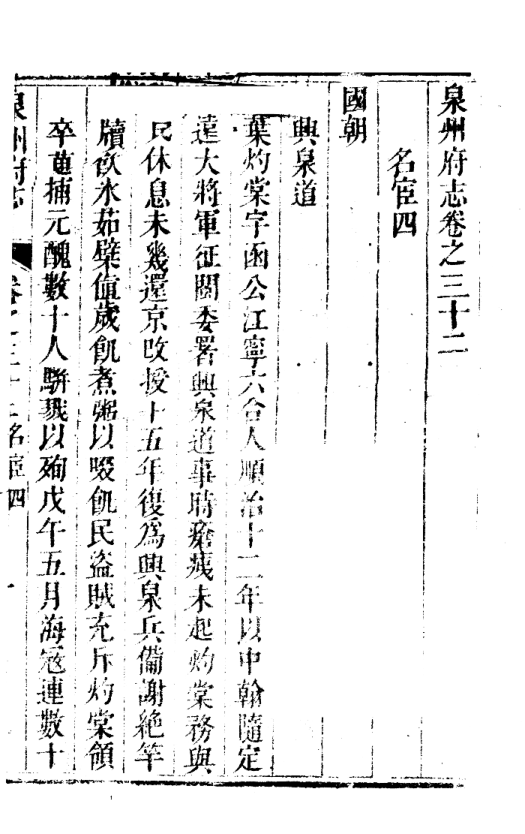 泉州府志卷之三十二
名宦四
國朝
興泉道
葉灼棠字函公江寧六合人順治十二年以中翰隨定
遠大將軍征閩委署興泉道事時瘡痍未起灼棠務與
民休息未幾還京改授十五年復為興泉兵備謝絶竿
牘飲氷茹櫱值歲飢煮粥以啜飢民盗賊充斥灼棠領
卒蒐捕元醜數十人駢戮以殉戊午五月海寇連數十
泉州府志 卷之三十二名宦四